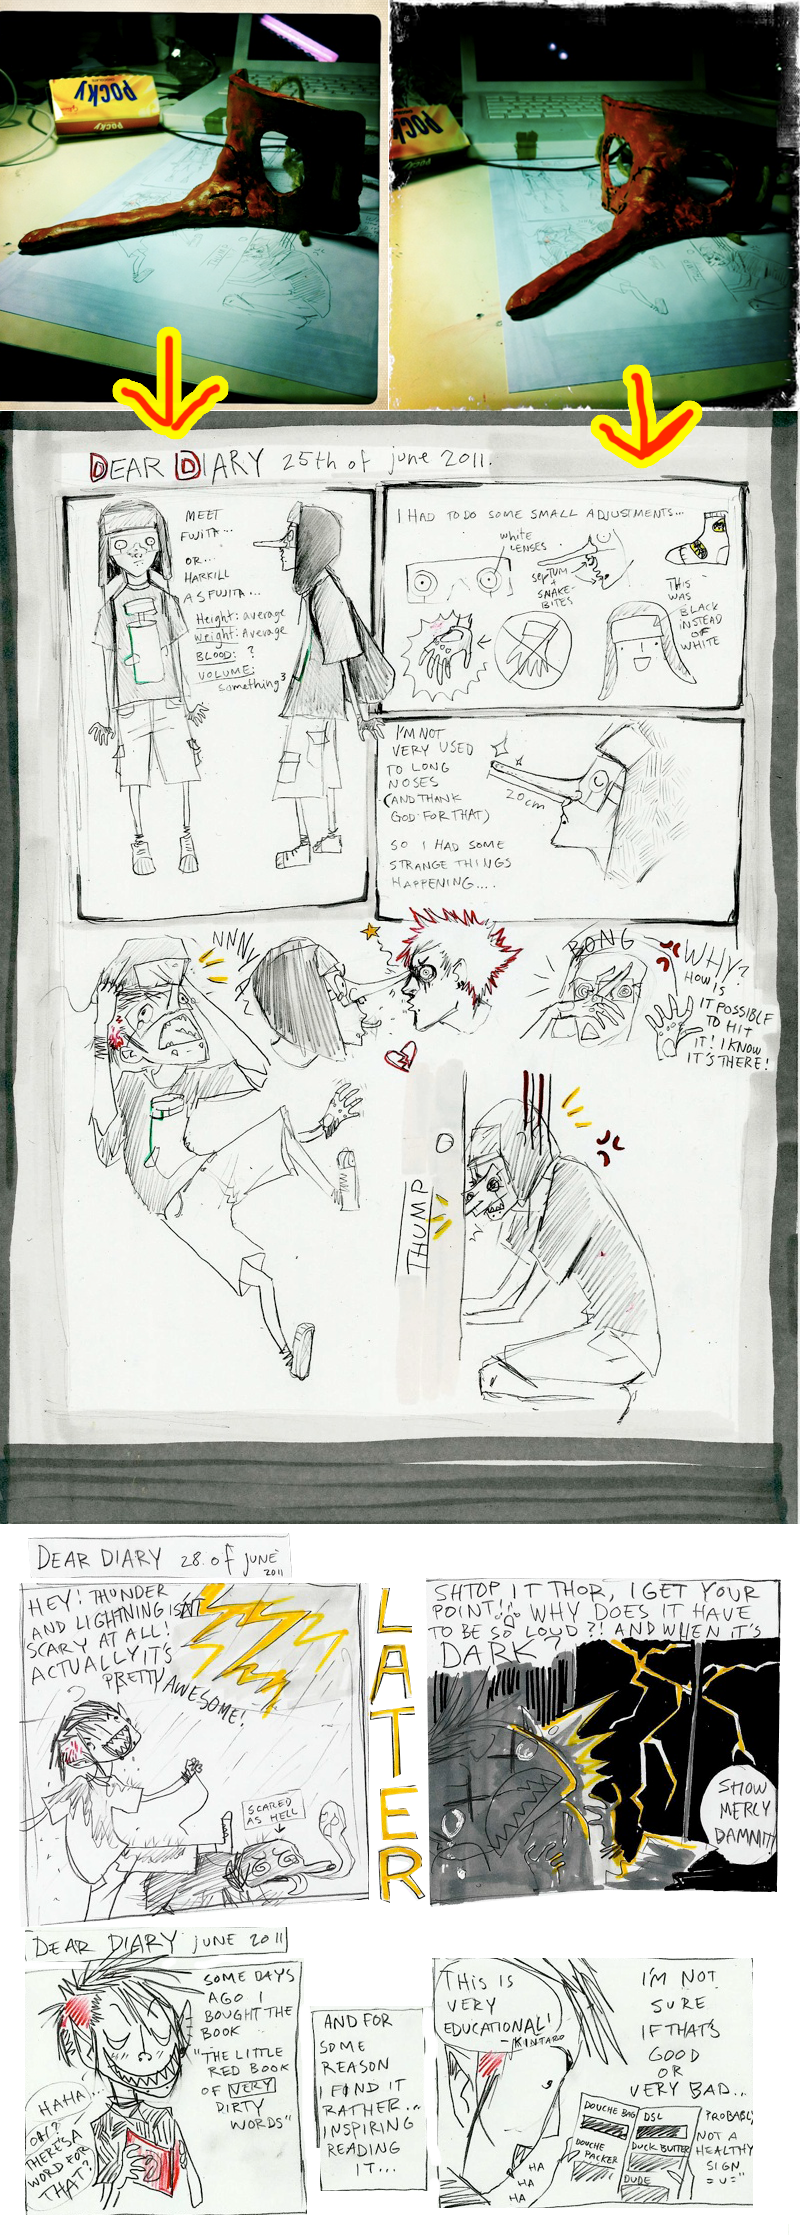 POCKY
POCKY
POCKY
DEAR DIARY 25th of june 2011.
MEET
FUJITA...
OR...
HARKILL
AS FUJITA...
Height: average
Weight: Average
BLOOD: ?
VOLUME:
something³
I HAD TO DO SOME SMALL ADJUSTMENTS...
white
LENSES
SEPTUM
+
SNAKE-
BITES
THIS
WAS
BLACK
INSTEAD
OF
WHITE
I'M NOT
VERY USED
TO LONG
NOSES
(AND THANK
GOD FOR THAT)
20cm
SO I HAD SOME
STRANGE THINGS
HAPPENING....
NNN
BONG
WHY?
HOW IS
IT POSSIBLE
TO HIT
IT! I KNOW
IT'S THERE!
THUMP
DEAR DIARY 28. of june
2011
HEY! THUNDER
AND LIGHTNING ISN'T
SCARY AT ALL!
ACTUALLY IT'S
PRETTY AWESOME!
SCARED
AS HELL
LATER
SHTOP IT THOR, I GET YOUR
POINT!! WHY DOES IT HAVE
TO BE SO LOUD?! AND WHEN IT'S
DARK?
SHOW
MERCY
DAMMIT!
DEAR DIARY june 2011
SOME DAYS
AGO I
BOUGHT THE
BOOK
"THE LITTLE
RED BOOK
OF VERY
DIRTY
WORDS"
HAHA...
OH!?
THERE'S A
WORD FOR
THAT?
AND FOR
SOME
REASON
I FIND IT
RATHER...
INSPIRING
READING
IT...
THIS IS
VERY
EDUCATIONAL!
-KINTARO
HA
HA
HA
I'M NOT
SURE
IF THAT'S
GOOD
OR
VERY BAD...
DOUCHE BAG
DSL
DOUCHE
PACKER
DUCK BUTTER
DUDE
PROBABLY
NOT A
HEALTHY
SIGN
=u="